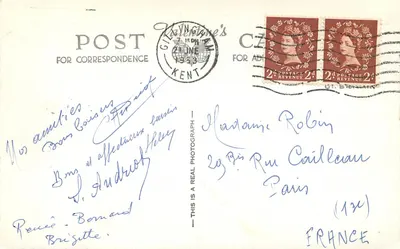 POST
FOR CORRESPONDENCE
GILLINGHAM
JNE
KENT
POSTAGE
REVENUE
2½
POSTAGE
REVENUE
2½
Nos amitiés
Bons baisers
Bons et affectueux baisers
Renée - Bernard
Brigitte.
THIS IS A REAL PHOTOGRAPH
Madame Robin
29 Bis Rue Cailleau
Paris
FRANCE